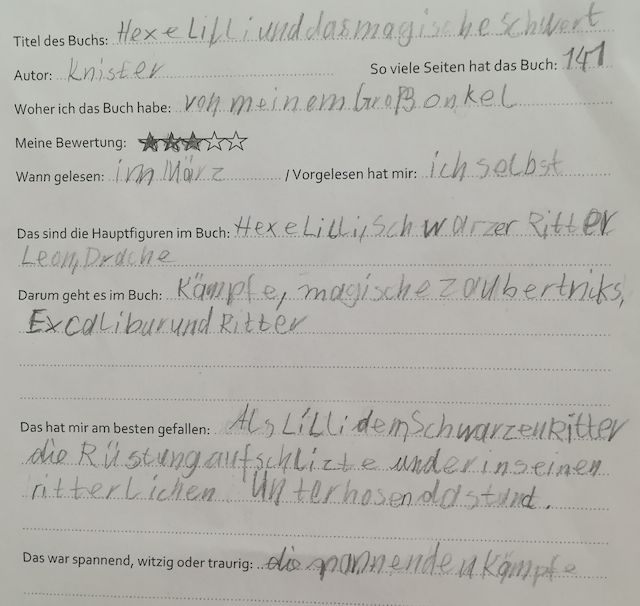 Titel des Buchs: Hexe Lilli und das magische Schwert
Autor: Knister So viele Seiten hat das Buch: 141
Woher ich das Buch habe: von meinem Großonkel
Meine Bewertung:
Wann gelesen: im März / Vorgelesen hat mir: ich selbst
Das sind die Hauptfiguren im Buch: Hexe Lilli, Schwarzer Ritter
Leon, Drache
Darum geht es im Buch: Kämpfe, magische zaubertricks,
Excalibur und Ritter
Das hat mir am besten gefallen: Als Lilli dem Schwarzen Ritter
die Rüstung aufschlizte und er in seinen
ritterlichen Unterhosen dastand.
Das war spannend, witzig oder traurig: die spannenden Kämpfe